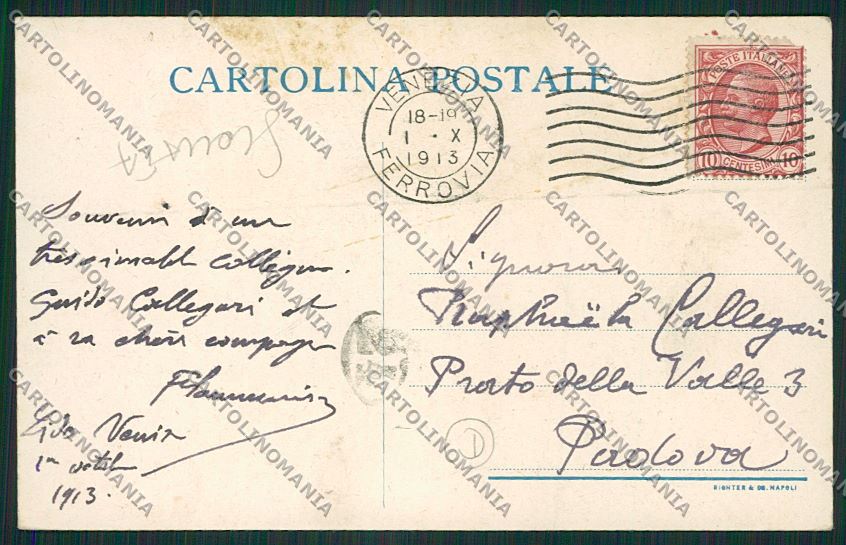 CARTOLINA POSTALE
VENEZIA
18-19
1 · X
1913
FERROVIA
POSTE ITALIANE
10 CENTESIMI 10
Souvenir d'une
très aimable collègue
Guido Callegari et
à sa chère compagne
Flammarion
Lido Venise
1er octobre
1913.
Signora
Raphaëla Callegari
Prato della Valle 3
Padova
RICHTER & Co. NAPOLI
CARTOLINOMANIA